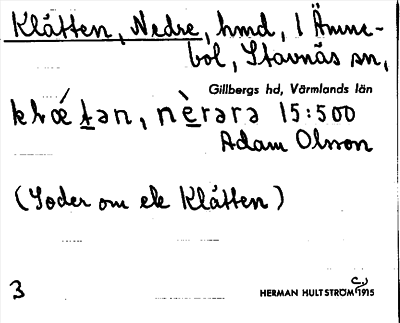 Klåtten, Nedre, hmd, l Ämne-
bol, Stavnäs sn,
Gillbergs hd, Värmlands län
nèrərə 15:500
Adam Olsson
(Söder om ek Klåtten)
3
HERMAN HULTSTRÖM 1915